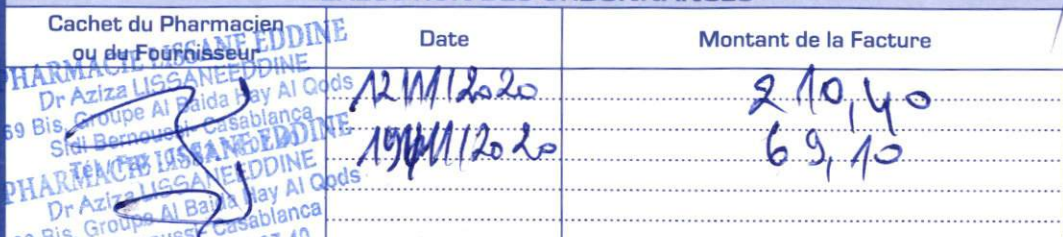 Cachet du Pharmacien
ou du Fournisseur
Date
Montant de la Facture
PHARMACIE LISSANE EDDINE
Dr Aziza LISSANEEDDINE
69 Bis, Groupe Al Baida Hay Al Qods
Sidi Bernoussi - Casablanca
12/11/2020
210,40
PHARMACIE LISSANE EDDINE
19/11/2020
69,10
Dr Aziza LISSANEEDDINE
Bis, Groupe Al Baida Hay Al Qods
Casablanca